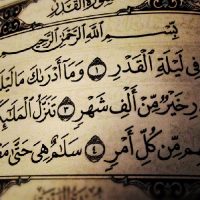 سُورَةُ القَدْرِ
بِسْمِ اللَّهِ الرَّحْمَٰنِ الرَّحِيمِ
فِي لَيْلَةِ الْقَدْرِ ١ وَمَا أَدْرَىٰكَ مَا لَيْلَ
رِ خَيْرٌ مِّنْ أَلْفِ شَهْرٍ ٣ تَنَزَّلُ الْمَلَٰٓئِ
هِم مِّن كُلِّ أَمْرٍ ٤ سَلَٰمٌ هِيَ حَتَّىٰ مَ